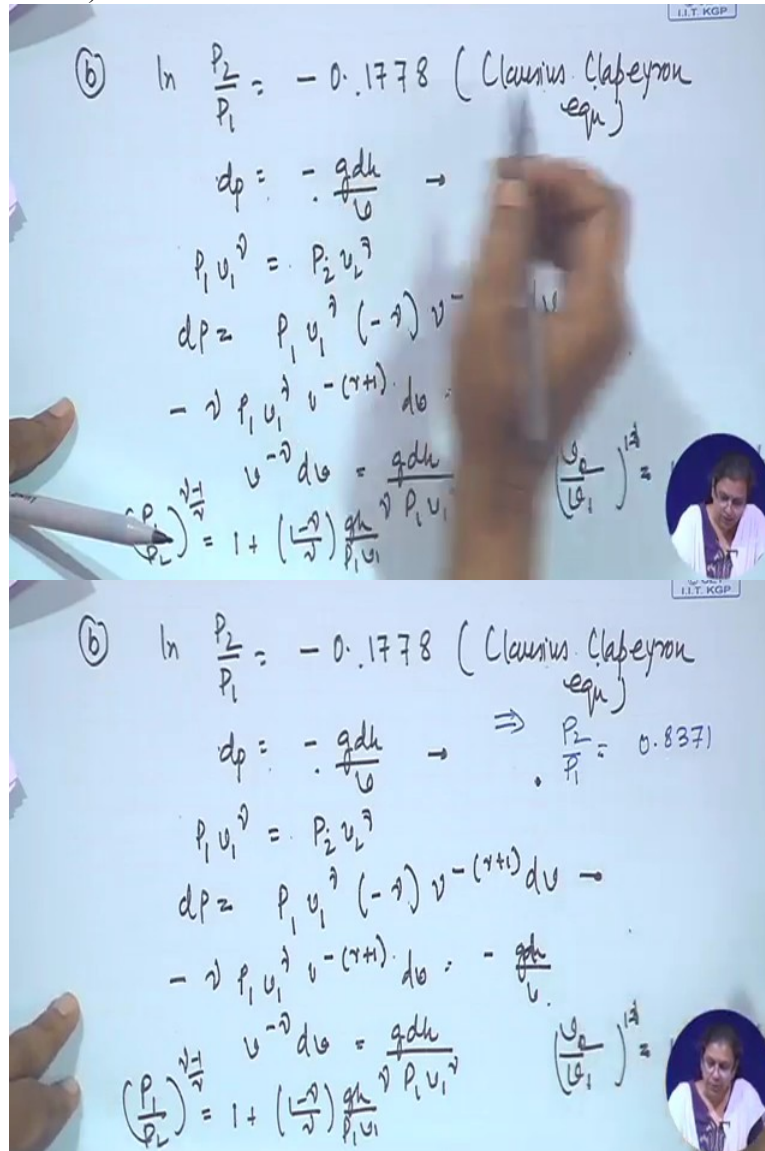 I.I.T. KGP
(b) ln P2/P1 = - 0.1778 ( Clausius Clapeyron
eqn )
dp = - gdh/v →
P1 v1^γ = P2 v2^γ
dP = P1 v1^γ (-γ) v^-
- γ P1 v1^γ v^-(γ+1) dv =
v^-γ dv = gdh/γ P1 v1
(P1/P2)^(γ-1)/γ = 1 + (1-γ/γ) gh/P1 v1
I.I.T. KGP
(b) ln P2/P1 = - 0.1778 ( Clausius Clapeyron
eqn )
dp = - gdh/v → ⇒ P2/P1 = 0.8371
P1 v1^γ = P2 v2^γ
dP = P1 v1^γ (-γ) v^-(γ+1) dv →
- γ P1 v1^γ v^-(γ+1) dv = - gdh/v.
v^-γ dv = gdh/γ P1 v1^γ
(P1/P2)^(γ-1)/γ = 1 + (1-γ/γ) gh/P1 v1